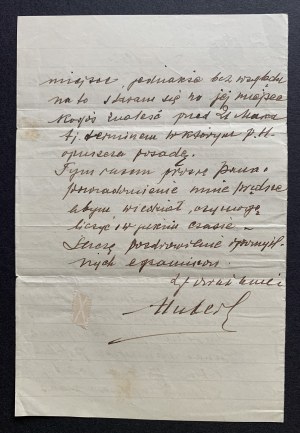 miejsce, jednakże bez względu
na to staram się na jej miejsce
kogoś znaleść przed 21 Marca
tj. terminem w którym p. H
opuszcza posadę.
Tym razem proszę Pana
powiadomienie mnie prędze
abym wiedział, czy mogę
liczyć i w jakim czasie
pozdrowienie i pomyśl-
nych egzaminów.
Hubert